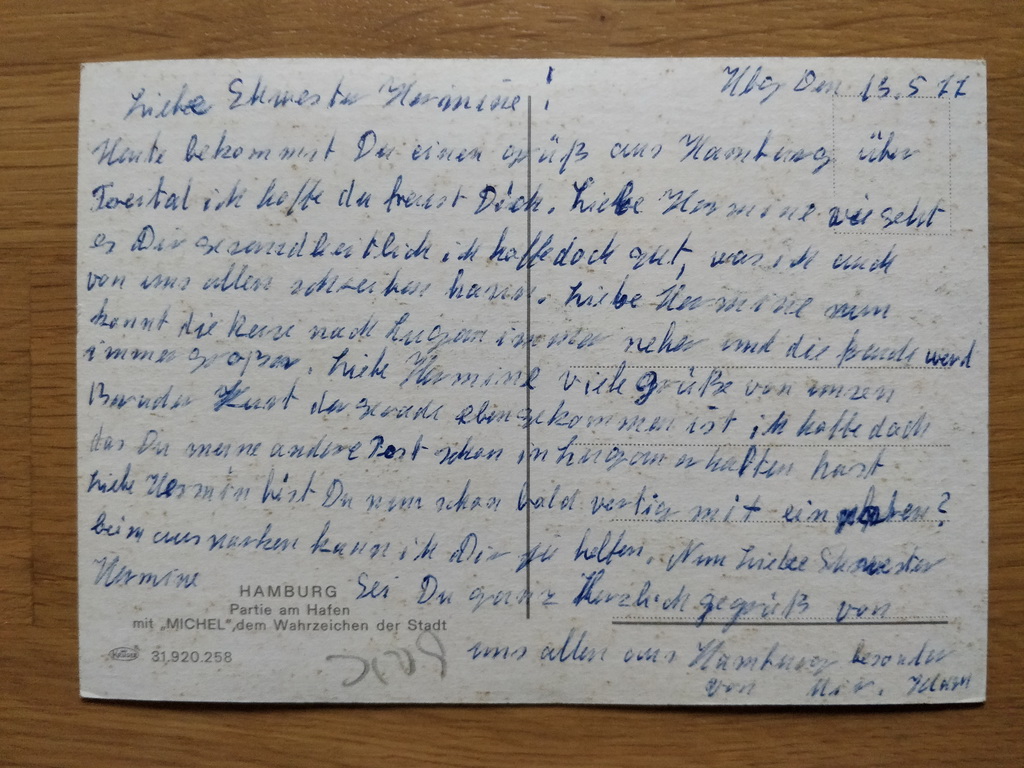 Hbg Den 13.5 77
Liebe Schwester Hermine!
Heute bekommst Du einen grüß aus Hamburg über
ich hoffe du freust Dich. Liebe Hermine wie geht
es Dir ich hoffe doch gut, was ich auch
von uns allen kann. Liebe Hermine nun
komt die Reise nach Lugan immer neher und die freude werd
immer größer. Liebe Hermine viele grüße von unsen
Bruder Kurt der gerade eben gekommen ist ich hoffe doch
das Du meine andere Post schon in Lugan erhalten hast
Liebe Hermin bist Du nun schon bald vertig mit ein
beim auspacken kann ich Dir ja helfen. Nun Liebe Schwester
Hermine Sei Du ganz Herzlich gegrüß von
uns allen aus Hamburg besonder
von Mir.
HAMBURG
Partie am Hafen
mit „MICHEL", dem Wahrzeichen der Stadt
31.920.258